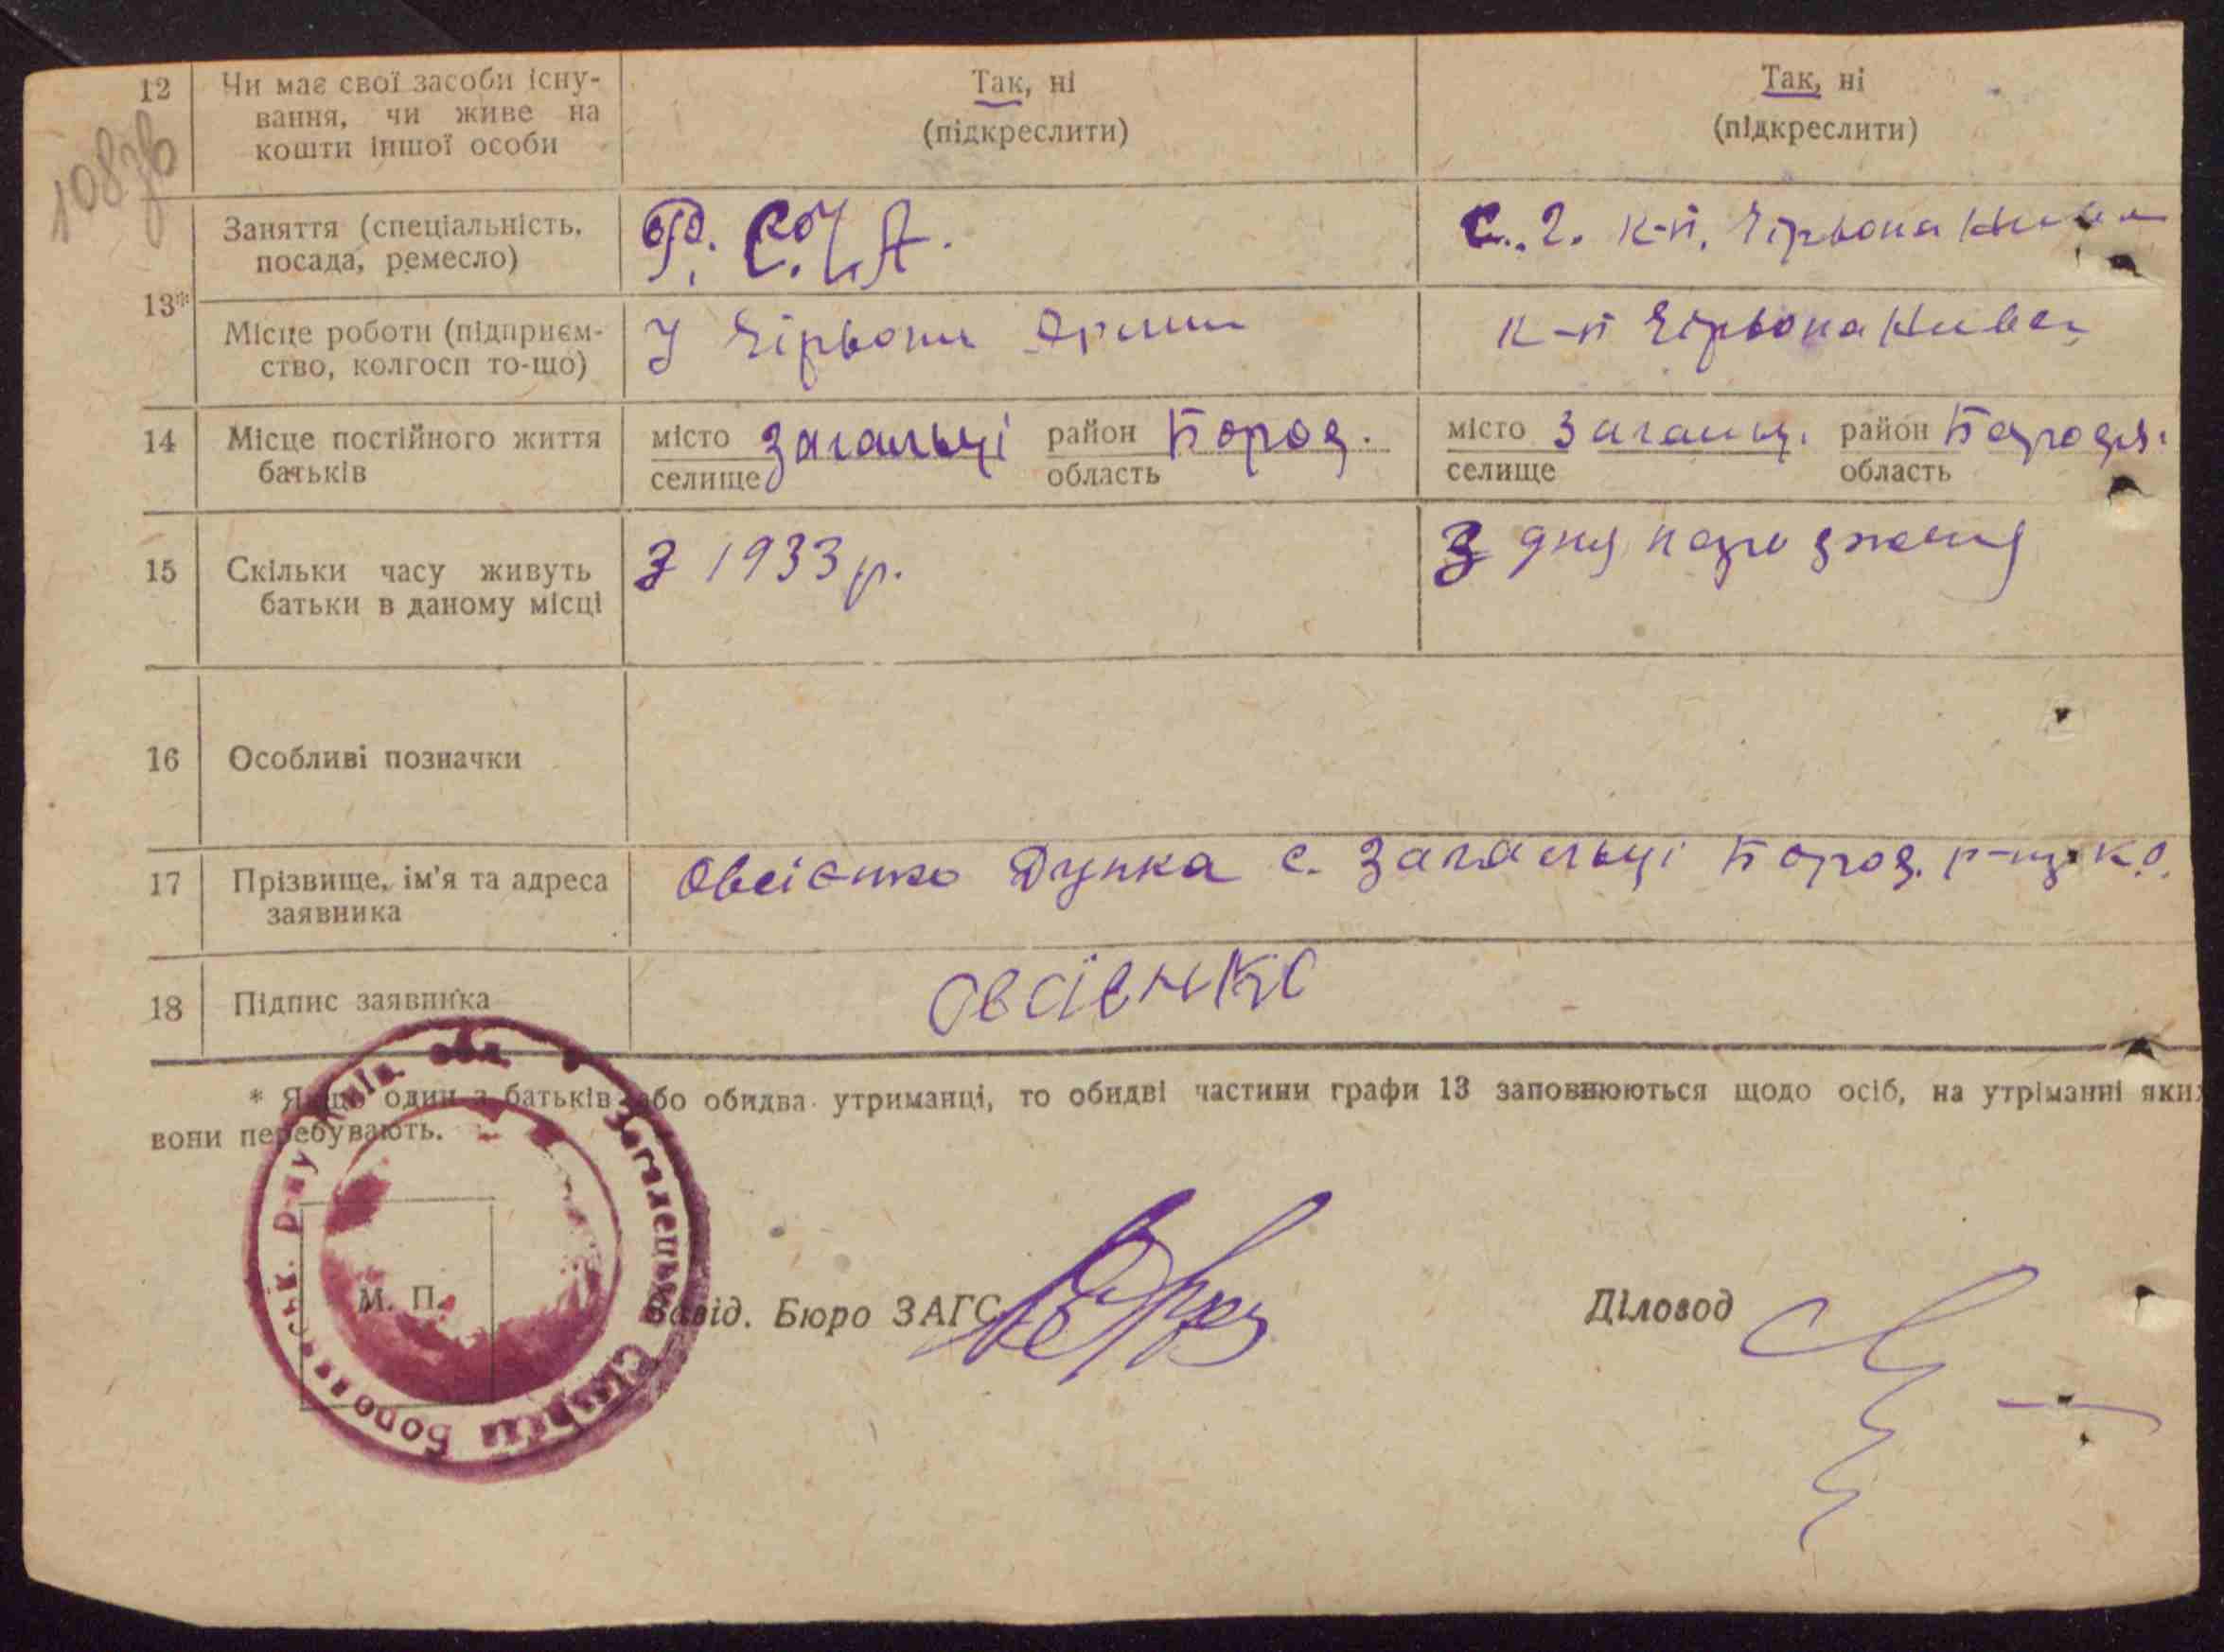 12 Чи має свої засоби існу-
вання, чи живе на
кошти іншої особи
Так, ні
(підкреслити)
Так, ні
(підкреслити)
108зв
13*
Заняття (спеціальність,
посада, ремесло)
С. г. к-п. Чірвона Нива
Місце роботи (підприєм-
ство, колгосп то-що)
У Чірвони Армии
к-п Чірвона Нива
14 Місце постійного життя
батьків
місто Загальці район Бород.
селище область
місто Загальц. район Бородя.
селище область
15 Скільки часу живуть
батьки в даному місці
З 1933 р.
З дня народження
16 Особливі позначки
17 Прізвище, ім'я та адреса
заявника
Овсієнко Дунка с. Загальці Бород. р-ну К.О.
18 Підпис заявника
Овсієнко
* Якщо один з батьків або обидва утриманці, то обидві частини графи 13 заповнюються щодо осіб, на утріманні яких
вони перебувають.
М. П.
Завід. Бюро ЗАГС
Діловод